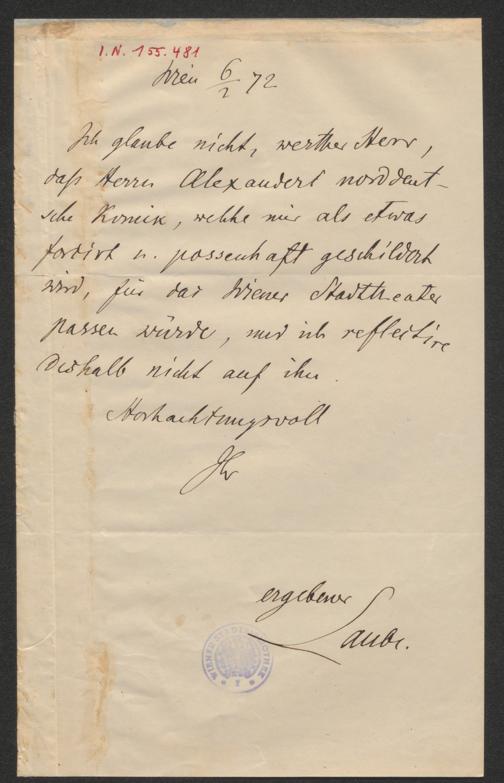 I.N. 155.481
Wien 6/2 72
Ich glaube nicht, werther Herr,
daß Herrn Alexanders norddeut-
sche Komik, welche mir als etwas
forcirt u. possenhaft geschildert
wird, für das Wiener Stadttheater
passen würde, und ich reflectire
deshalb nicht auf ihn.
Hochachtungsvoll
Ihr
ergebener
Laube.
WIENER STADTBIBLIOTHEK